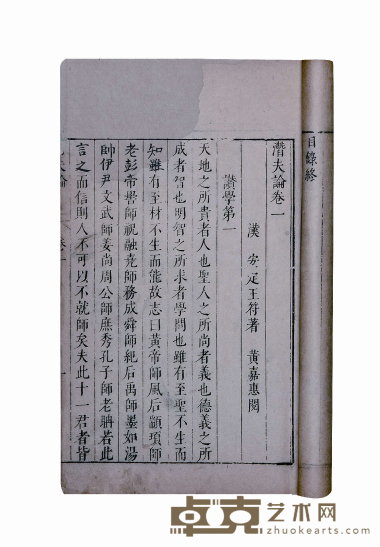 目錄終
潛夫論卷一
漢 安定王符著 黃嘉惠閱
讚學第一
天地之所貴者人也聖人之所尚者義也德義之所
成者智也明智之所求者學問也雖有至聖不生而
知雖有至材不生而能故志曰黃帝師風后顓頊師
老彭帝嚳師祝融堯師務成舜師紀后禹師墨如湯
師伊尹文武師姜尚周公師庶秀孔子師老聃若此
言之而信則人不可以不就師矣夫此十一君者皆
夫論 卷一 一
卓克艺术网
www.zhuokearts.com